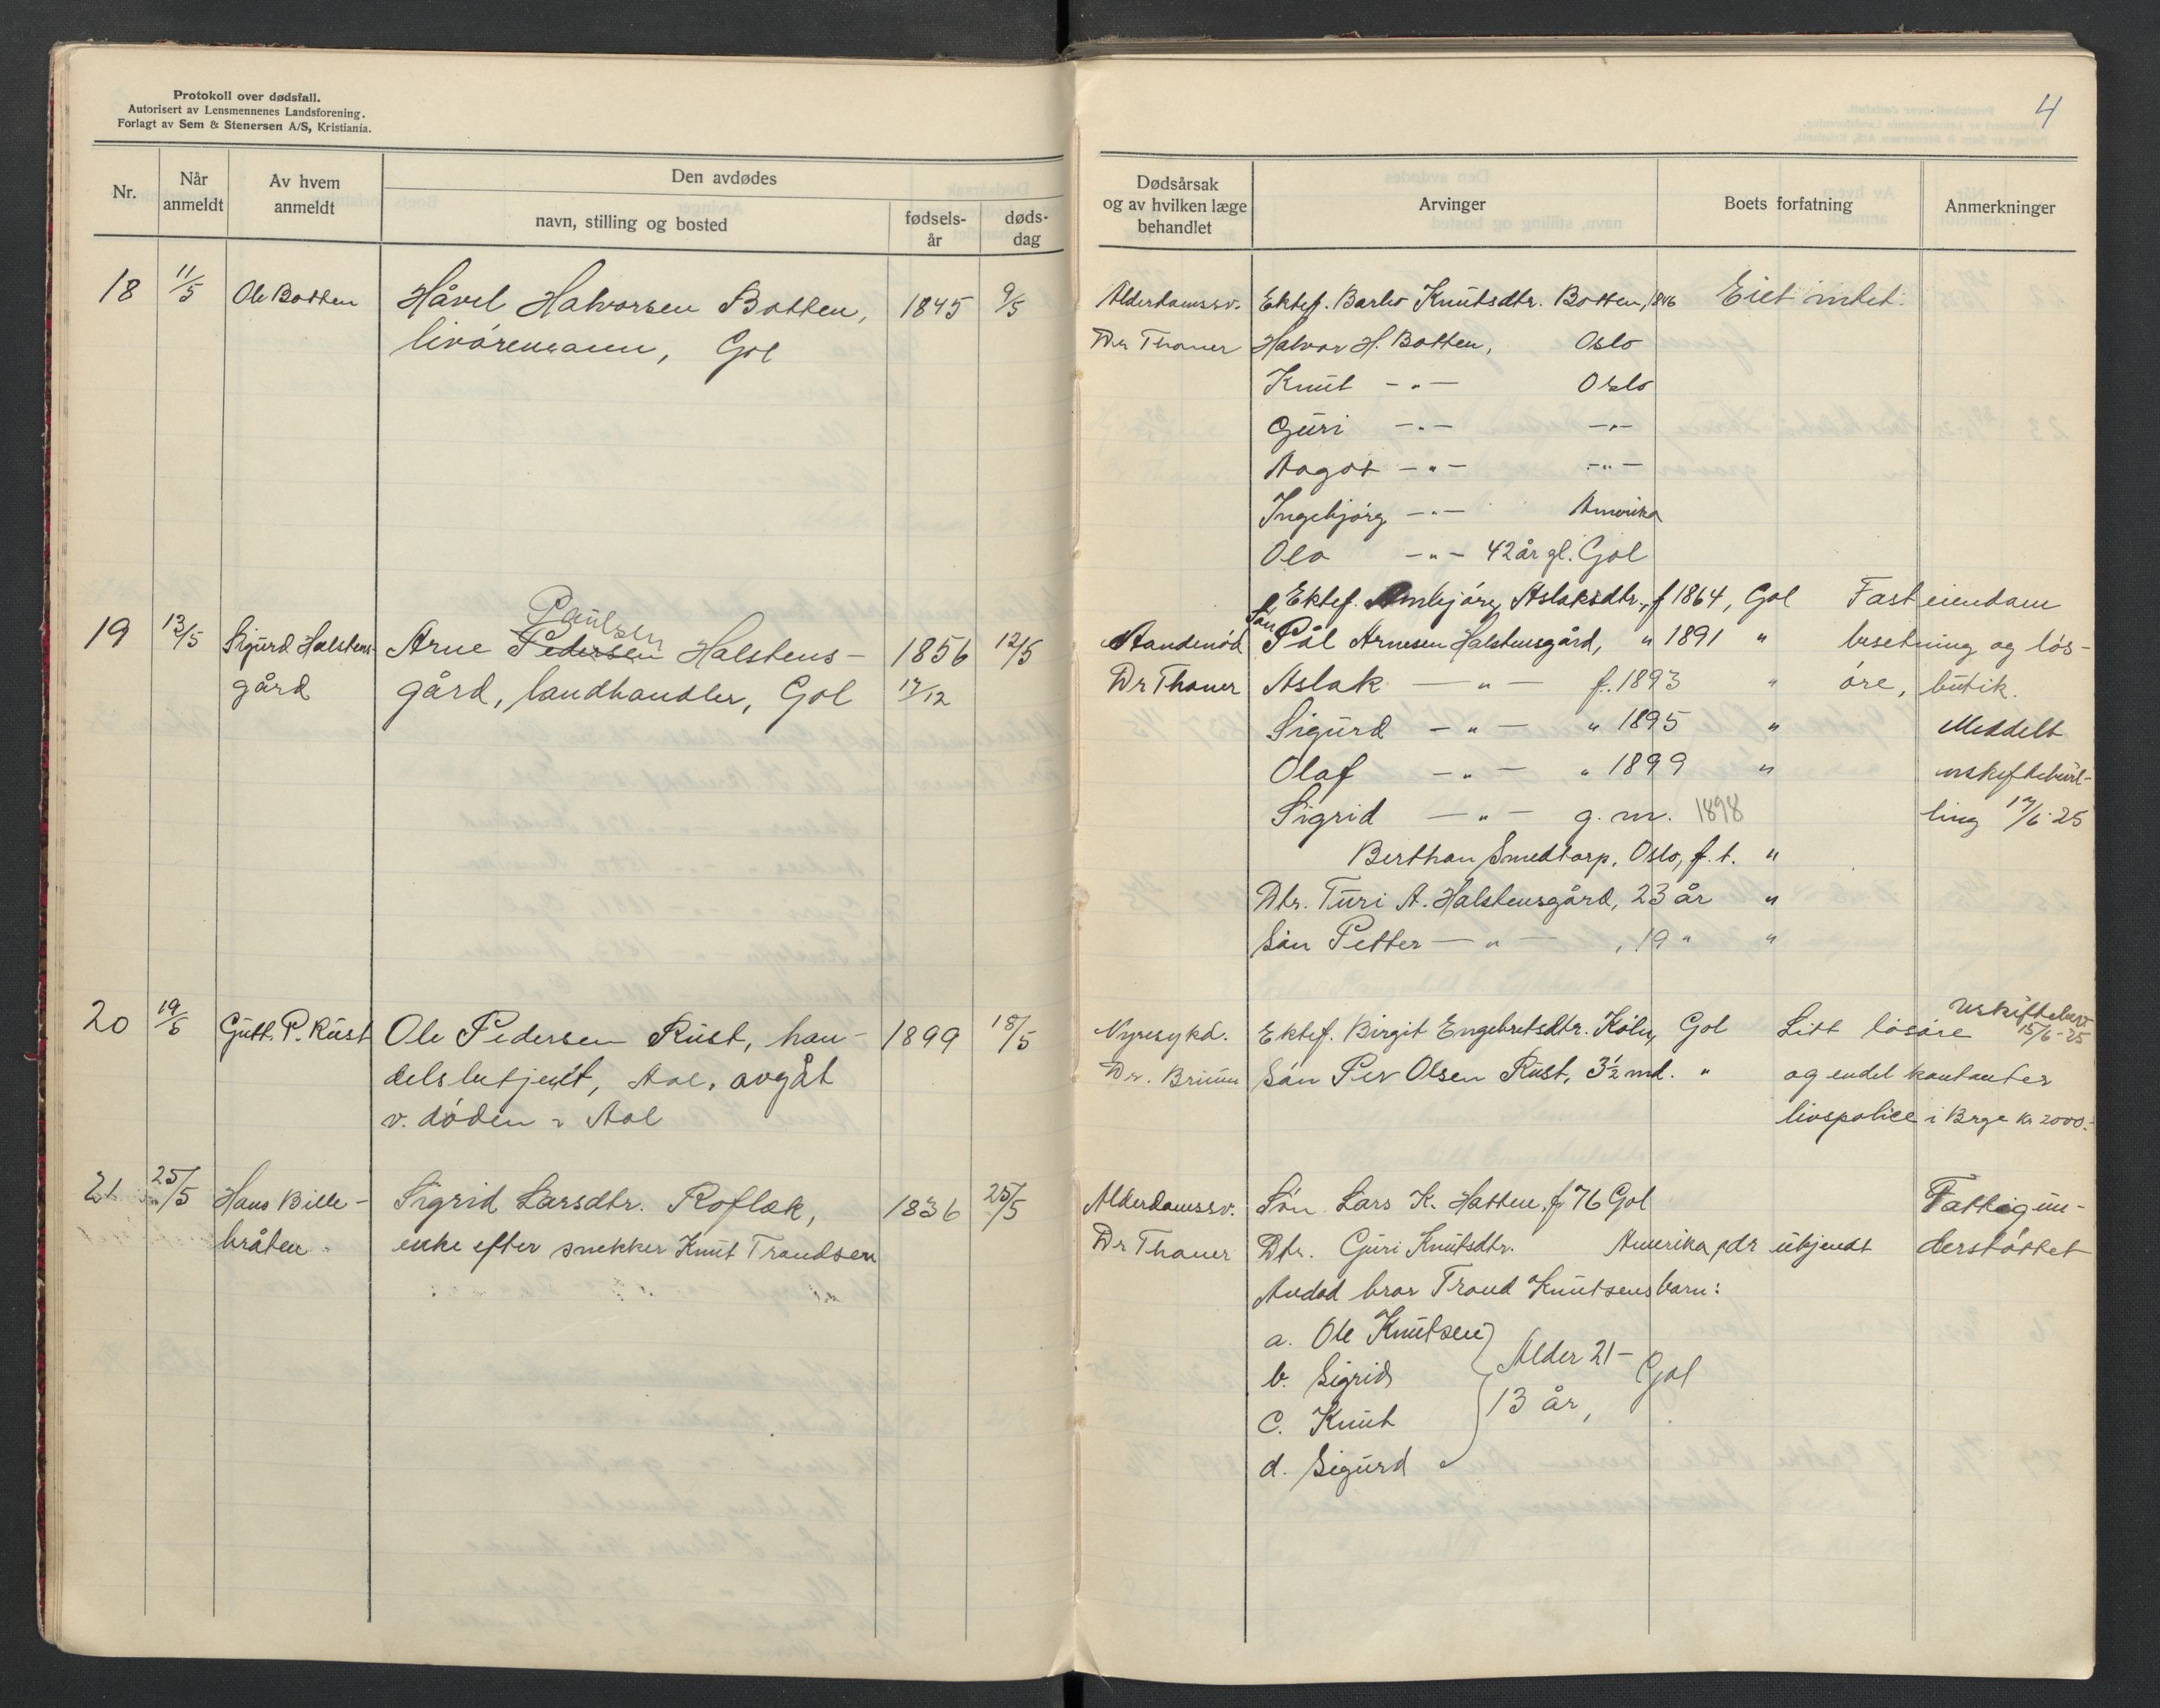 Protokoll over dødsfall.
Autorisert av Lensmennenes Landsforening.
Forlagt av Sem & Stenersen A/S, Kristiania.
4
Nr.
Når anmeldt
Av hvem anmeldt
Den avdødes
navn, stilling og bosted
fødsels-år
døds-dag
Dødsårsak og av hvilken læge behandlet
Arvinger
Boets forfatning
Anmerkninger
18 11/5 Ole Botten Håvel Halvorsen Botten, 1845 9/5 Alderdomssv. Ektef. Barbo Knutsdtr. Botten, 1846 Eiet intet.
livøremann, Gol Dr Thoner Halvor H. Botten, Oslo
Knut -"- Oslo
Guri -"- -"-
Aagot -"- -"-
Ingebjørg -"- Amerika
Ola -"- 42 år gl. Gol
Ektef. Ambjørg Aslaksdtr., f 1864, Gol Fast eiendom
Paulsen
19 13/5 Sigurd Halstens- Arne Pedersen Halstens- 1856 12/5 Aandenød Søn Pål Arnesen Halstensgård, " 1891 " besetning og løs-
gård gård, landhandler, Gol 17/12 Dr Thoner Aslak -"- f. 1893 " øre, butik.
Sigurd -"- " 1895 " Meddelt
Olaf -"- " 1899 " uskiftebevil-
Sigrid -"- g.m. 1898 ling 17/6 25
Berthon Smedtorp, Oslo, f.t. "
Dtr. Turi A. Halstensgård, 23 år "
Søn Petter -"- , 19 " "
Uskiftebev.
15/6-25
20 19/5 Gutt. P. Rust Ole Pedersen Rust, han- 1899 18/5 Nyresykd. Ektef. Birgit Engebretsdtr. Golu, Gol Litt løsøre
delsbetjent, Aal, avgåt Dr. Bruun Søn Per Olsen Rust, 3½ md. " og endel kontanter
v. døden i Aal livspolice i Brge kr 2000.-
21 25/5 Hans Bille- Sigrid Larsdtr. Roflak, 1836 25/5 Alderdomssv. Søn Lars K. Hatten, f 76 Gol Fattigun-
bråten enke efter snekker Knut Trondsen Dr Thoner Dtr. Guri Knutsdtr. Amerika, adr ubjendt derstøttet
Avdød bror Trond Knutsens barn:
a. Ole Knutsen
b. Sigrid Alder 21- Gol
c. Knut 13 år,
d. Sigurd